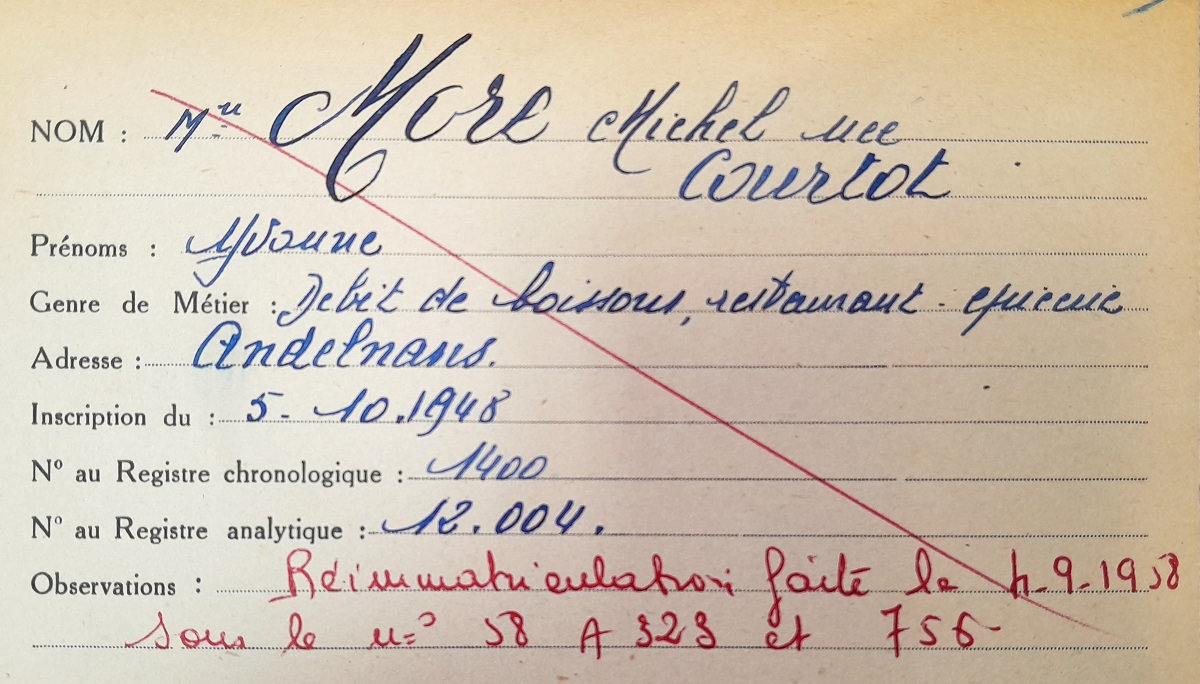 NOM : Mme More Michel nee
Courtot
Prénoms : Yvonne
Genre de Métier : Debit de boissons, restaurant - epicerie
Adresse : Andelnans.
Inscription du : 5 - 10.1948
No au Registre chronologique : 1400
No au Registre analytique : 12.004.
Observations : Réimmatriculation faite le 4-9-1958
sous le n=o 58 A 323 et 756